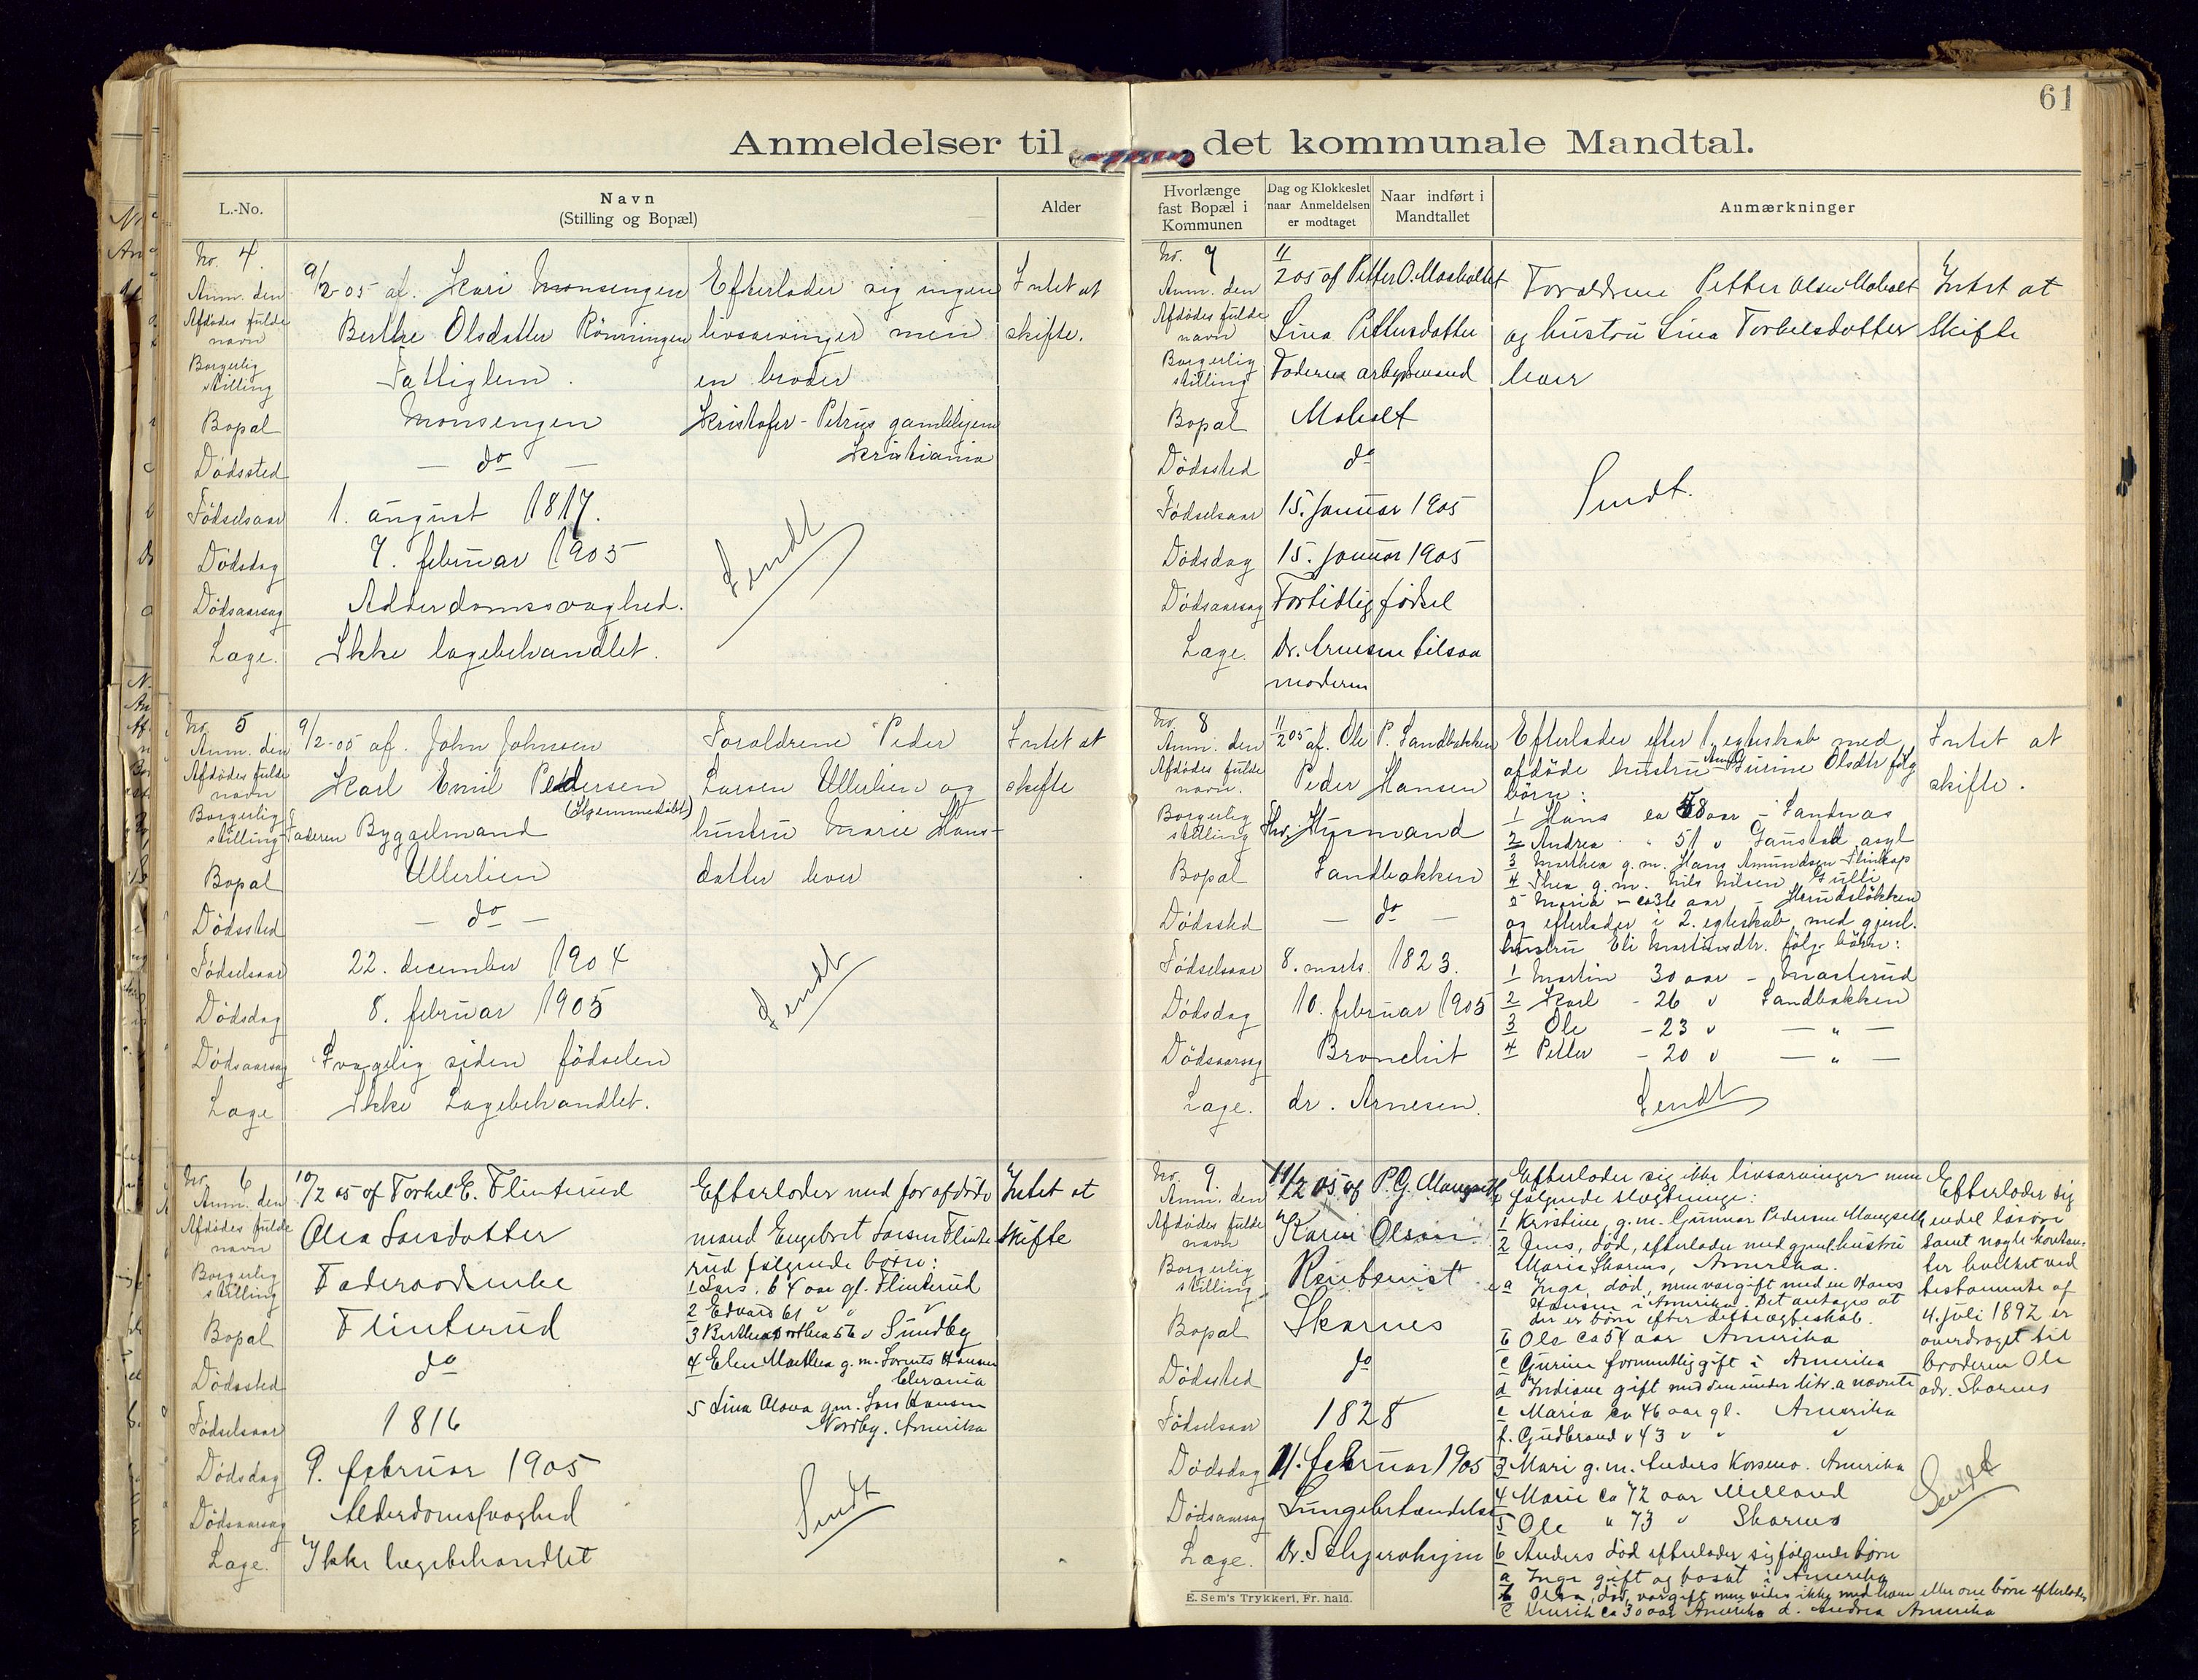 61
Anmeldelser til det kommunale Mandtal.
L.-No.
Navn
(Stilling og Bopæl)
Alder
No. 4.
Anm. den 9/2-05 af. Kari Monsengen
Afdødes fulde navn Berthe Olsdatter Rönningen
Borgerlig stilling Fattiglem.
Bopæl Monsengen
Dödssted — do —
Födselsaar 1. august 1817.
Dödsdag 7. februar 1905
Dödsaarsag Alderdomssvaghed.
Læge. Ikke lægebehandlet.
Efterlader sig ingen
livsarvinger men
en broder
Kristofer - Petrus gamlehjem
Kristiania
Sendt
Intet at
skifte.
No. 5
Anm. den 9/2-05 af. John Johnsen
Afdødes fulde navn Karl Emil Pedersen
(hjemmedöbt)
Borgerlig stilling Faderen Byggselmand
Bopæl Ullerlien
Dödssted — do —
Födselsaar 22. december 1904
Dödsdag 8. februar 1905
Dödsaarsag Svagelig siden födselen
Læge Ikke Lægebehandlet.
Forældrene Peder
Larsen Ullerlien og
hustru Marie Hans-
datter lever
Sendt
Intet at
skifte
No. 6
Anm. den 10/2 05 af Torkel E. Flinterud
Afdødes fulde navn Olea Larsdatter
Borgerlig stilling Föderaadsenke
Bopæl Flinterud
Dödssted do
Födselsaar 1816
Dödsdag 9. februar 1905
Dödsaarsag Alderdomssvaghed
Læge. Ikke lægebehandlet
Efterlader med før afdöde
mand Engebret Larsen Flinte-
rud følgende børn:
1 Lars, 64 aar gl. Flinterud
2 Edvard 61 " " "
3 Berthe Dorthea 56 " Sundby
4 Elen Marthea g. m. Lorents Hansen
5 Lina Olava g.m. Lars Hansen
Nordby. Amerika
Sendt
Intet at
skifte
Hvorlænge
fast Bopæl i
Kommunen
Dag og Klokkeslet
naar Anmeldelsen
er modtaget
Naar indført i
Mandtallet
Anmærkninger
No. 7
Anm. den 11/2 05 af Petter O. Moholtet
Afdødes fulde navn Lina Pettersdatter
Borgerlig stilling Faderen arbeidsmand
Bopæl Moholt
Dödssted do
Födselsaar 15. januar 1905
Dödsdag 15. januar 1905
Dödsaarsag Fortidlig fødsel
Læge. Dr. Arnesen tilsaa
moderen
Forældrene Petter Olsen Moholt
og hustru Lina Torkelsdatter
lever
Sendt.
Intet at
skifte
No. 8
Anm. den 11/2 05 af. Ole P. Sandbakken
Afdødes fulde navn. Peder Hansen
Borgerlig stilling fhv. Husmand
Bopæl Sandbakken
Dödssted — do —
Födselsaar 8. marts 1823.
Dödsdag 10. februar 1905
Dödsaarsag Bronchit
Læge. dr. Arnesen.
Efterlader efter 1. egteskab med
afdöde hustru Gurine Olsdtr følg.
börn:
1 Hans ca 58 aar - Sandnæs
2 Andrea " 51 " Gaustad asyl
3 Marthea g. m. Hans Amundsen
4 Thea g. m. Nils Nilsen Gulli
5 Maria - ca 36 aar -
og efterlader i 2. egteskab med gjenl.
hustru Eli Martinsdtr. følg. börn:
1 Martin 30 aar - Masterud
2 Karl - 26 " Sandbakken
3 Ole - 23 " — " —
4 Petter - 20 " — " —
Sendt
Intet at
skifte.
No. 9.
Anm. den 11/2 05 af P. G. Mangseth
Afdødes fulde navn Karen Olsen
Borgerlig stilling Rentenist
Bopæl Skarnes
Dödssted do
Födselsaar 1828
Dödsdag 11. februar 1905
Dödsaarsag Lungebetændelse
Læge. Dr. Schjerohejm
Efterlader sig ikke livsarvinger men
følgende slægtninge:
1 Kristine, g. m. Gunnar Pedersen Mangseth
2 Jens, død, efterlader med gjenl. hustru
Marie Skarnes, Amerika.
a Inge, død, men var gift med en Hans
Hansen i Amerika. Det antages at
der er børn efter dette ægteskab.
b Ole ca 54 aar Amerika
c Gurine formentlig gift i Amerika
d Indiane gift med den under litr. a nævnte
e Maria ca 46 aar gl. Amerika
f. Gudbrand " 43 " " "
3 Mari g. m. Anders Korsmo. Amerika
4 Marie ca 72 aar Milland
5 Ole " 73 " Skarnes
6 Anders død efterlader sig følgende børn
a Inge gift og bosat i Amerika
b Olea, død, var gift men vides ikke med hvem eller om børn efterlades
c Henrik ca 30 aar Amerika d. Andrea Amerika
Efterlader sig
endel løsøre
samt nogle kontan-
ter hvilket ved
testamente af
4. juli 1892 er
overdraget til
broderen Ole
adr. Skarnes
Sendt
E. Sem's Trykkeri, Fr. hald.